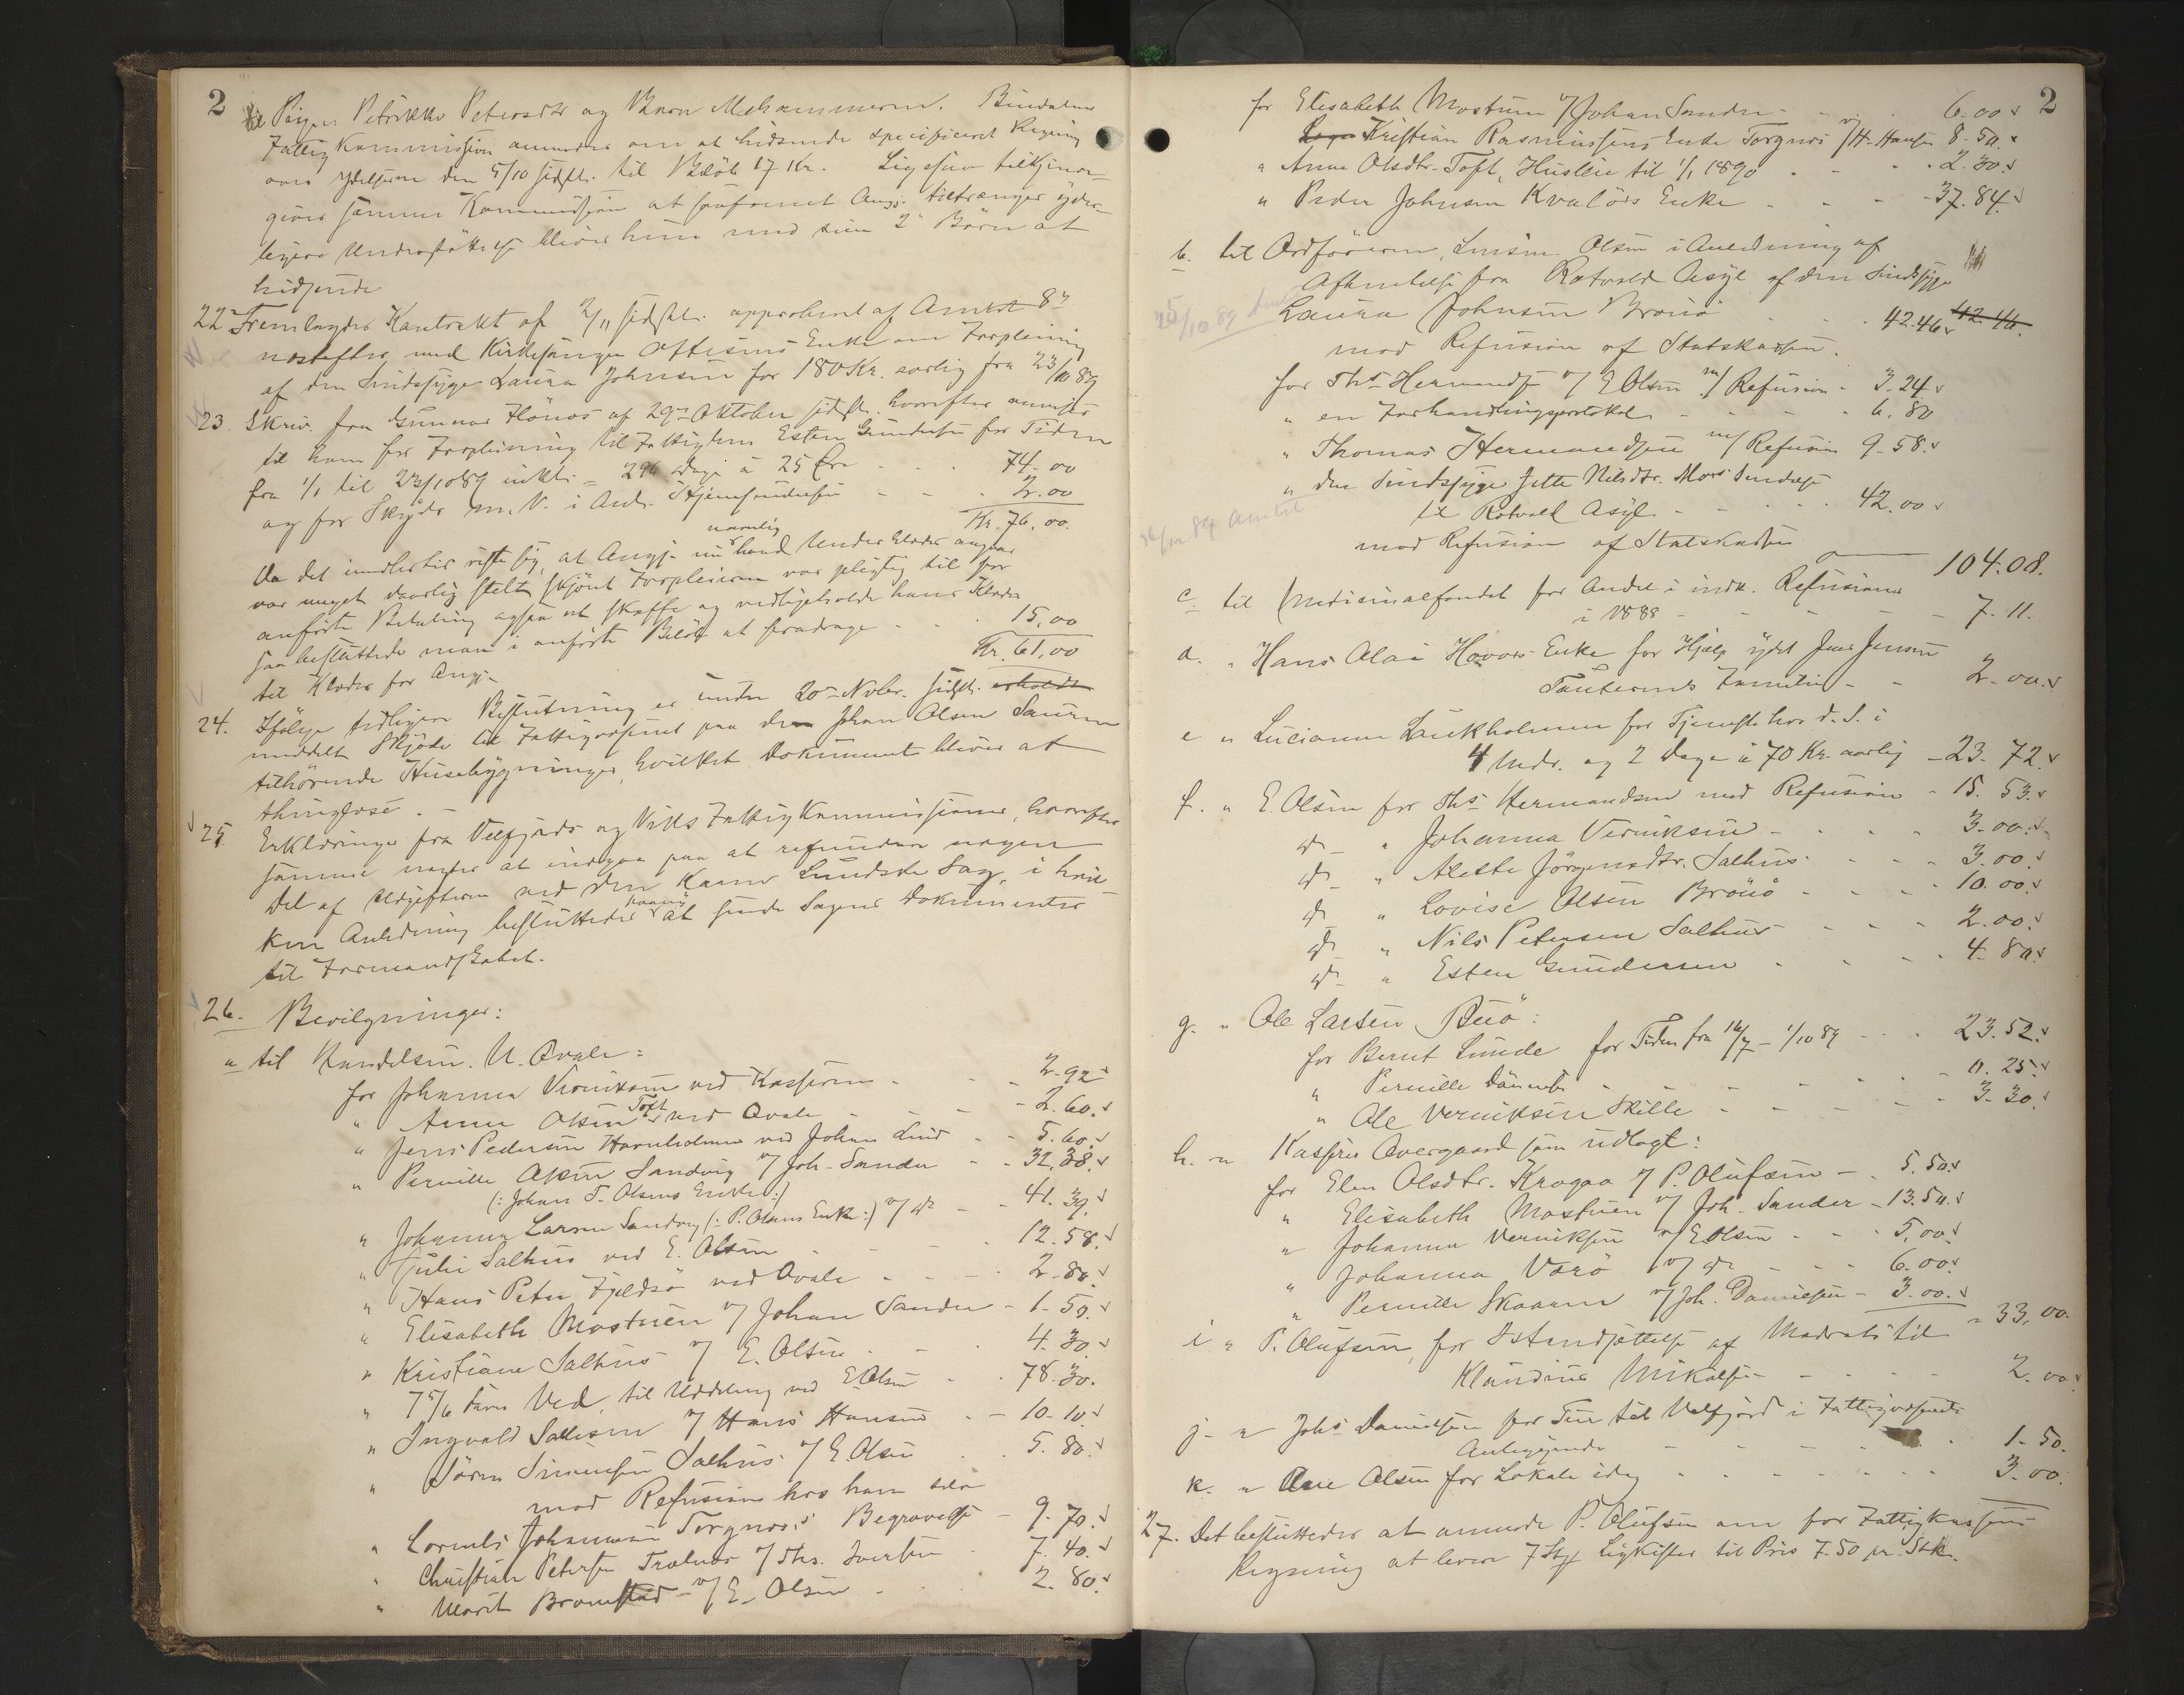 2
til Pigen Petrikke Petersdtr og Barn Mehammeren. Bindalens
Fattigkommission anmodes om at tilsende specificeret Regning
over ydelserne den 5/10 sidstl. til Beløb 17 Kr. Ligesom tilkjende-
gives samme Kommission at saafremt Angj. tiltrænger yder-
ligere Understøttelse bliver hun med sine 2 Børn at
hidsende
22. Fremlagdes Kontrakt af 2/11 sidstl. approberet af Amtet 8de
næstefter, med Kirkesanger Ottesens Enke om Forpleining
af den Sindssyge Laura Johnsen for 180 Kr. aarlig fra 23/10 89
23. Skriv. fra Gunnar Hønes af 29de Oktober sidstl. hvorefter anvises
til ham for Forpleining til Fattiglem Esten Gundersen for Tiden
fra 1/1 til 23/10 89 inkl. = 296 Dage à 25 Øre - - - 74.00
og for Skyds m. V. i Anl. Hjemsendelsen - - - 2.00
Kr. 76,00.
Da det imidlertid viste sig, at Angj. navnlig hvad Underklæder angaar
var meget daarlig stelt skjønt Forpleieren var pligtig til for
anførte Betaling ogsaa at skaffe og vedligeholde hans Klæder
saa besluttede man i anførte Beløb at fradrage - - - 15,00
til Klæder for Angj. - Kr. 61,00
24. Ifølge tidligere Beslutning er under 20de Novbr. sidstl.
meddelt Skjøde til Fattigvæsenet paa de Johan Olsen Sauren
tilhørende Husebygninger, hvilket Dokument bliver at
thinglæse. -
25. Erklæringer fra Velfjords og Viks Fattigkommissioner, hvorefter
samme negter at indgaa paa at refundere nogen
Del af Udgifterne ved den Lundske Sag, i hvil-
ken Anledning besluttedes at sende Sagens Dokumenter
til Formandskabet.
26. Bevilgninger:
a til Handelsm. U. Qvale:
for Johanna Veriksen ved Kasserer - - - 2.92
" Anne Olsen Toft ved Qvale - - - 2.60.
" Jens Pedersen Havnholmen ved Johan Lind - - 5.60.
" Pernille Olsen Sandvig v/ Joh. Sander - - 32,38.
(: Johan T. Olsens Enke :)
" Johanna Larsen Sandvig (: P. Olsens Enke :) v/ do - - 41.39.
" Julie Salhus ved E. Olsen - - - 12.58.
" Hans Peter Fjeldsø ved Qvale - - - 2.80.
" Elisabeth Mostuen v/ Johan Sander - 1.50.
" Kristiane Salhus v/ E. Olsen - - 4.30.
" 7 5/6 Favn Ved, til Uddeling ved E. Olsen - - 78.30.
" Ingvald Salbem v/ Hans Hansen - - 10.10.
" Søren Simonsen Salhus v/ E. Olsen - - 5.80.
mod Refusion hos ham selv
" Johannesen Torgnes's Begravelse - 9.70.
" Christian Petersen Trælnes v/ Ths. Ivertsen - 7.40.
" Marit Bromstad v/ E. Olsen - - 2.80.
2
for Elisabeth Mostuen v/ Johan Sander - - - 6.00
Kristian Rasmussens Enke Torgnes v/ H. Hansen 8.50.
" Anne Olsdtr. Toft, Husleie til 1/1 1890 - - - 2.30.
" Peder Johnsen Kvaløs Enke - - - 37.84.
b. til Ordføreren, Lensm. Olsen i Anledning af
Afhentelse fra Rotvold Asyl af den Sindssyge
Laura Johnsen Brønø - - - 42.46 42.46.
mod Refusion af Statskassen.
for Ths. Hermandsen v/ E. Olsen m/ Refusion - 3.24
" en Forhandlingsprotokol - - - 6.80
" Thomas Hermandsen m/ Refusion 9.58.
" den Sindssyge Jette Nilsdtr. Moes Sendelse
til Rotvold Asyl - - - 42.00
mod Refusion af Statskassen
104.08.
c. til Medicinalfondet for Andel i indk. Refusioner
i 1888 - - - 7.11.
d. " Hans Olai Hovos Enke for Hjælp ydet Jens Jensen
Familie - - 2.00.
e " Lucianne Laukholmen for Tjeneste hos d. S. i
4 Mdr. og 2 Dage à 70 Kr. aarlig - 23.72.
f. " E. Olsen for Ths. Hermandsen mod Refusion - 15.53.
do " Johanna Veriksen - - - 3.00.
do " Aleste Jørgensdtr. Salhus - - - 3.00.
do " Lovise Olsen Brønø - - - 10.00.
do " Nils Petersen Salhus - - - 2.00.
do " Esten Gundersen - - - 4.80.
g. " Ole Larsen Buø:
for Bernt Lunde for Tiden fra 16/7 - 1/10 89 - - 23.52.
" Pernille - - - 0.25.
" Ole Veriksen Skille - - - 3.30.
h. " Kasserer Overgaard som udlagt:
for Elen Olsdtr. Krogaa v/ P. Olufsen - 5.50.
" Elisabeth Mostuen v/ Joh. Sander - 13.50.
" Johanna Veriksen v/ E. Olsen - - 5,00.
" Johanna Værø v/ do - - - 6.00.
" Pernille Skaaren v/ Joh. Danielsen - 3.00.
- 33,00.
i " P. Olufsen, for Istandsættelse af Madrats til
Klaudine Mikalsen - - - 2.00.
j. " Johs Danielsen for Tur til Velfjord i Fattigvæsenets
Anliggende - - - 1.50.
k. " Ane Olsen for Lokale idag - - - 3.00.
27. Det besluttedes at anmode P. Olufsen om for Fattigkassens
Regning at levere 7 Stkr Ligkister til Pris 7.50 pr. Stk.